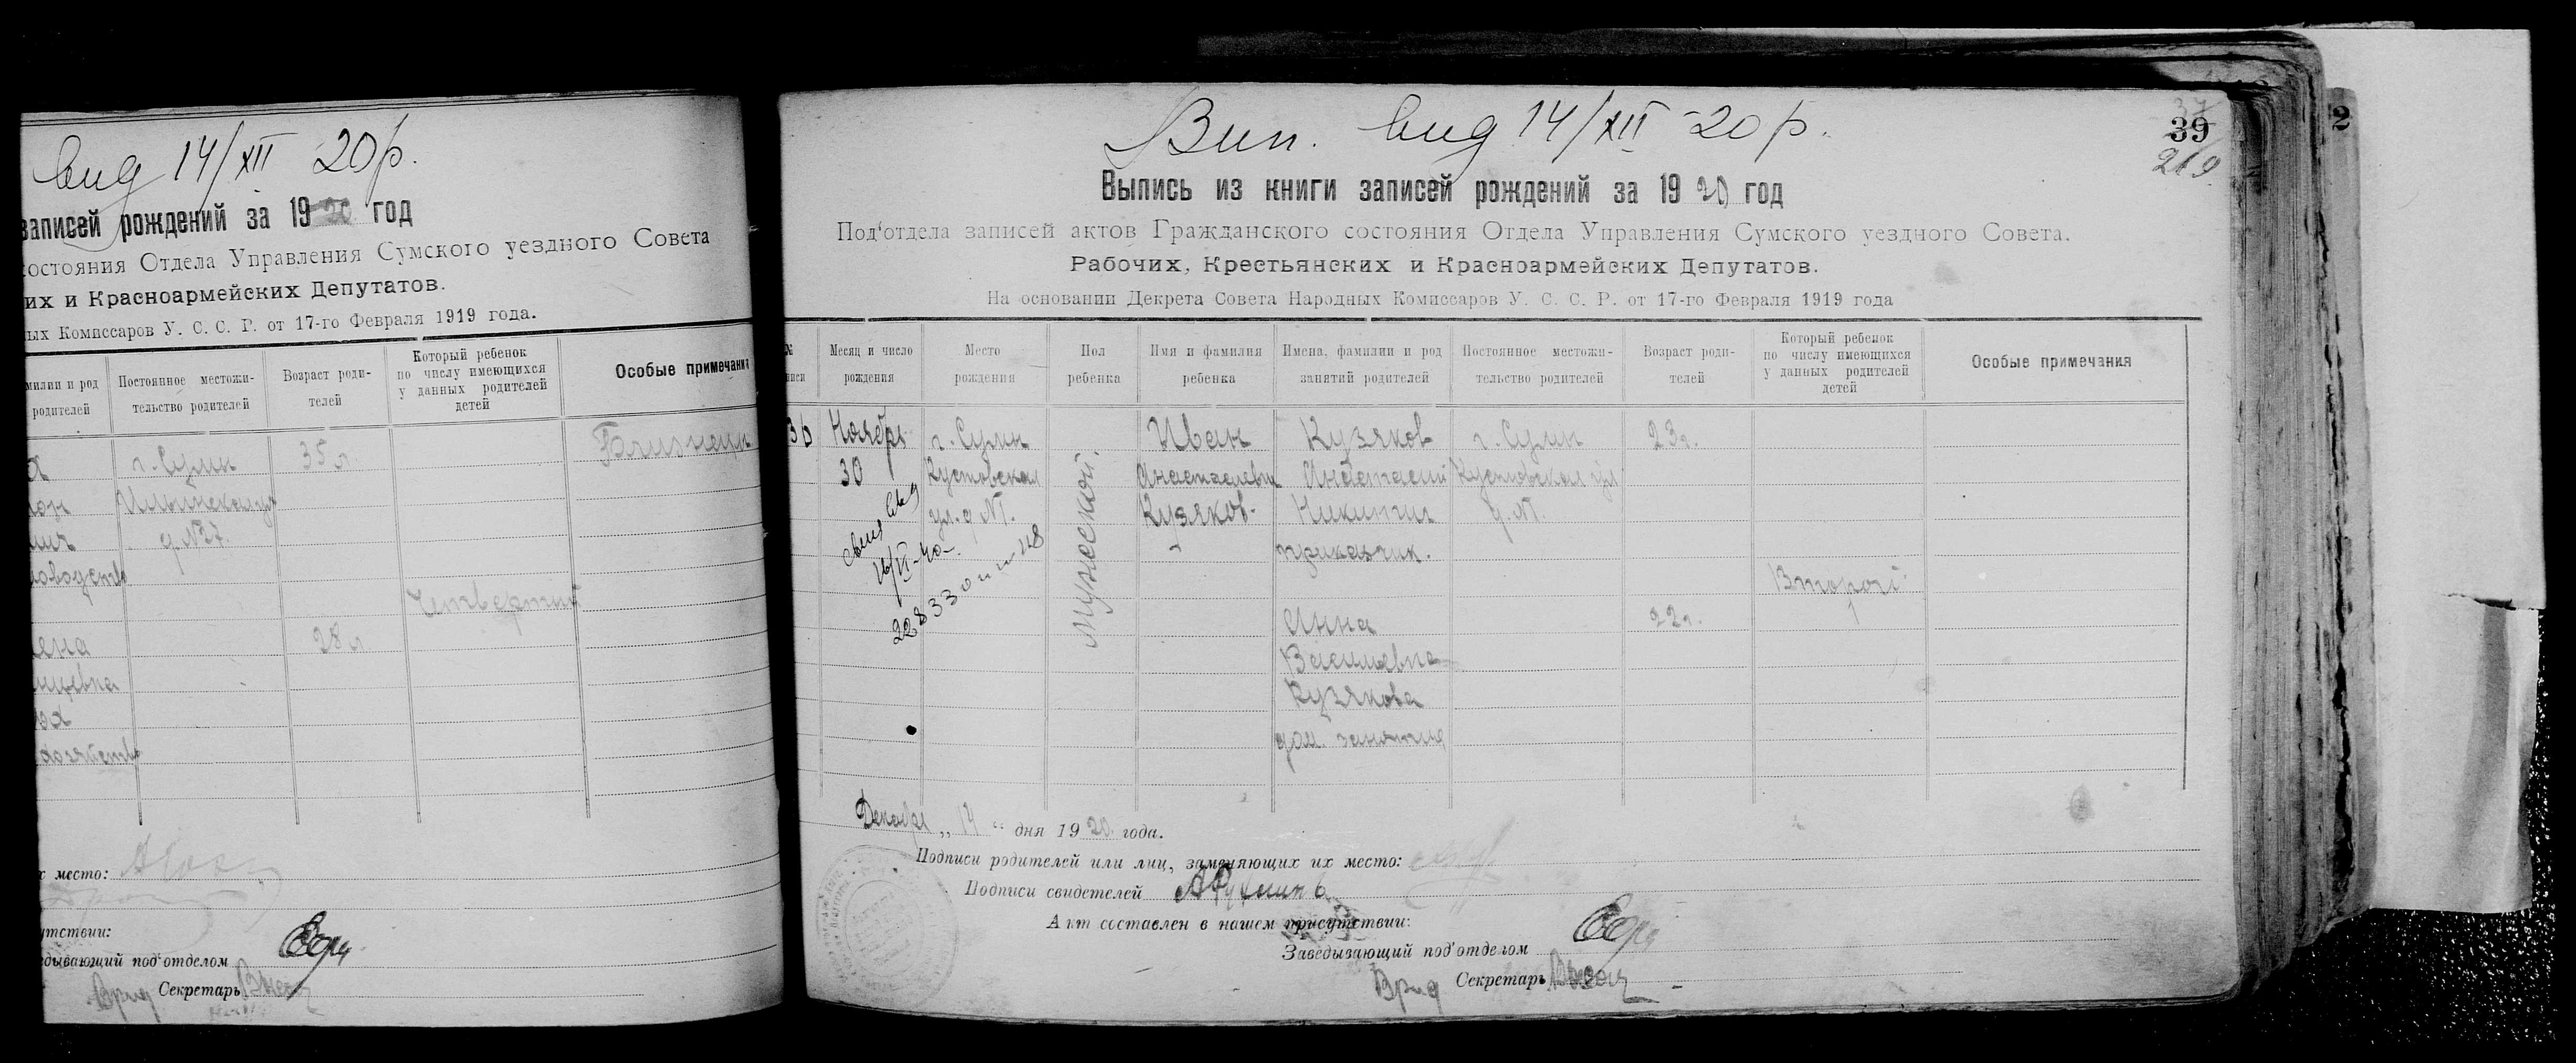 вид 14/XII 20 р.
записей рождений за 1920 год
состояния Отдела Управления Сумского уездного Совета
их и Красноармейских Депутатов.
ных Комиссаров У. С. С. Р. от 17-го Февраля 1919 года.
милии и род родителей
Постоянное местожительство родителей
Возраст родителей
Который ребенок по числу имеющихся у данных родителей детей
Особые примечания
г. Сумы 35 л.
Ильинская ул
д. №27.
оводство
Четвертый
28 л
х место:
утствии:
едывающий под'отделом
Врид Секретарь
Вип. вид 14/XII - 20 р.
37
39
219
2
Выпись из книги записей рождений за 1920 год
Под'отдела записей актов Гражданского состояния Отдела Управления Сумского уездного Совета.
Рабочих, Крестьянских и Красноармейских Депутатов.
На основании Декрета Совета Народных Комиссаров У. С. С. Р. от 17-го Февраля 1919 года
Месяц и число рождения
Место рождения
Пол ребенка
Имя и фамилия ребенка
Имена, фамилии и род занятий родителей
Постоянное местожительство родителей
Возраст родителей
Который ребенок по числу имеющихся у данных родителей детей
Особые примечания
36 Ноябрь г. Сумы Иван Кузяков г. Сумы 23 г.
30 Анастасиевич Анастасий
ул. д №1. Кузяков Никитич д. №1.
приказчик.
мужеской.
Второй
Анна 22 г.
Васильевна
Кузякова
дом. занятия
Декабря „ 14 “ дня 1920 года.
Подписи родителей или лиц, заменяющих их место:
Подписи свидетелей
Акт составлен в нашем присутствии:
Заведывающий под'отделом
Врид Секретарь